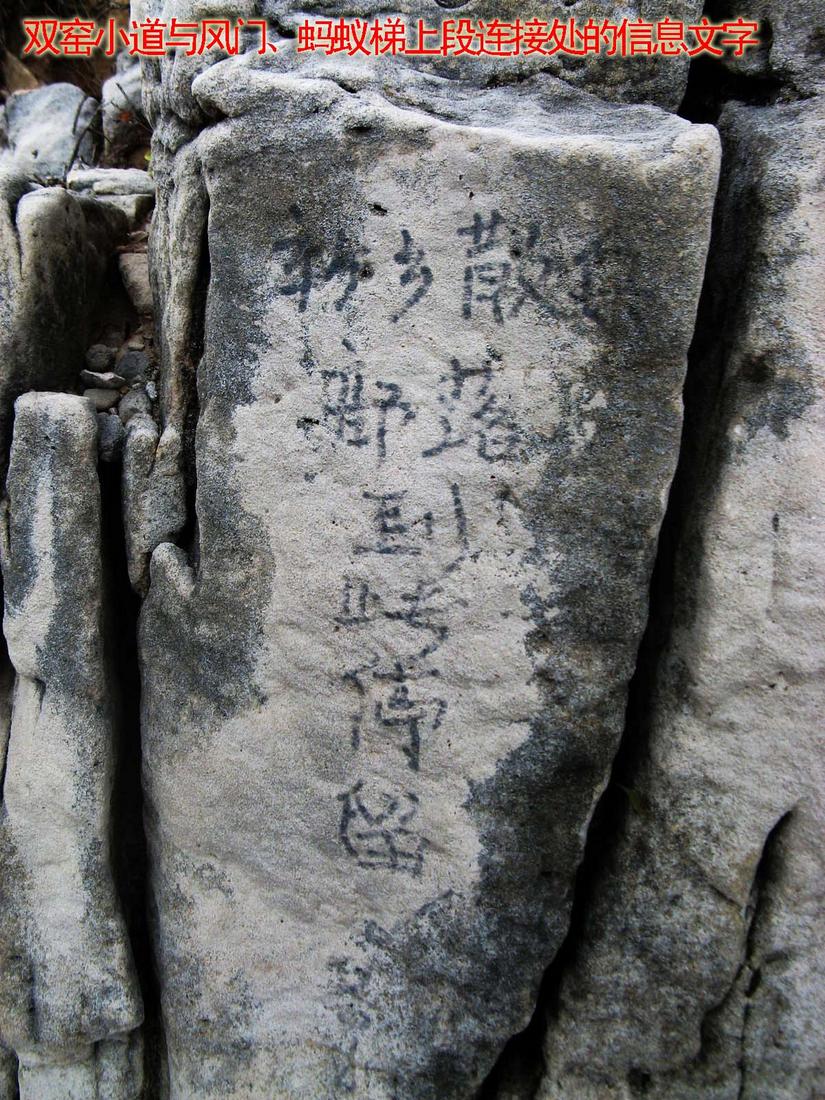 双窑小道与风门、蚂蚁梯上段连接处的信息文字
散落
乡
到此停留